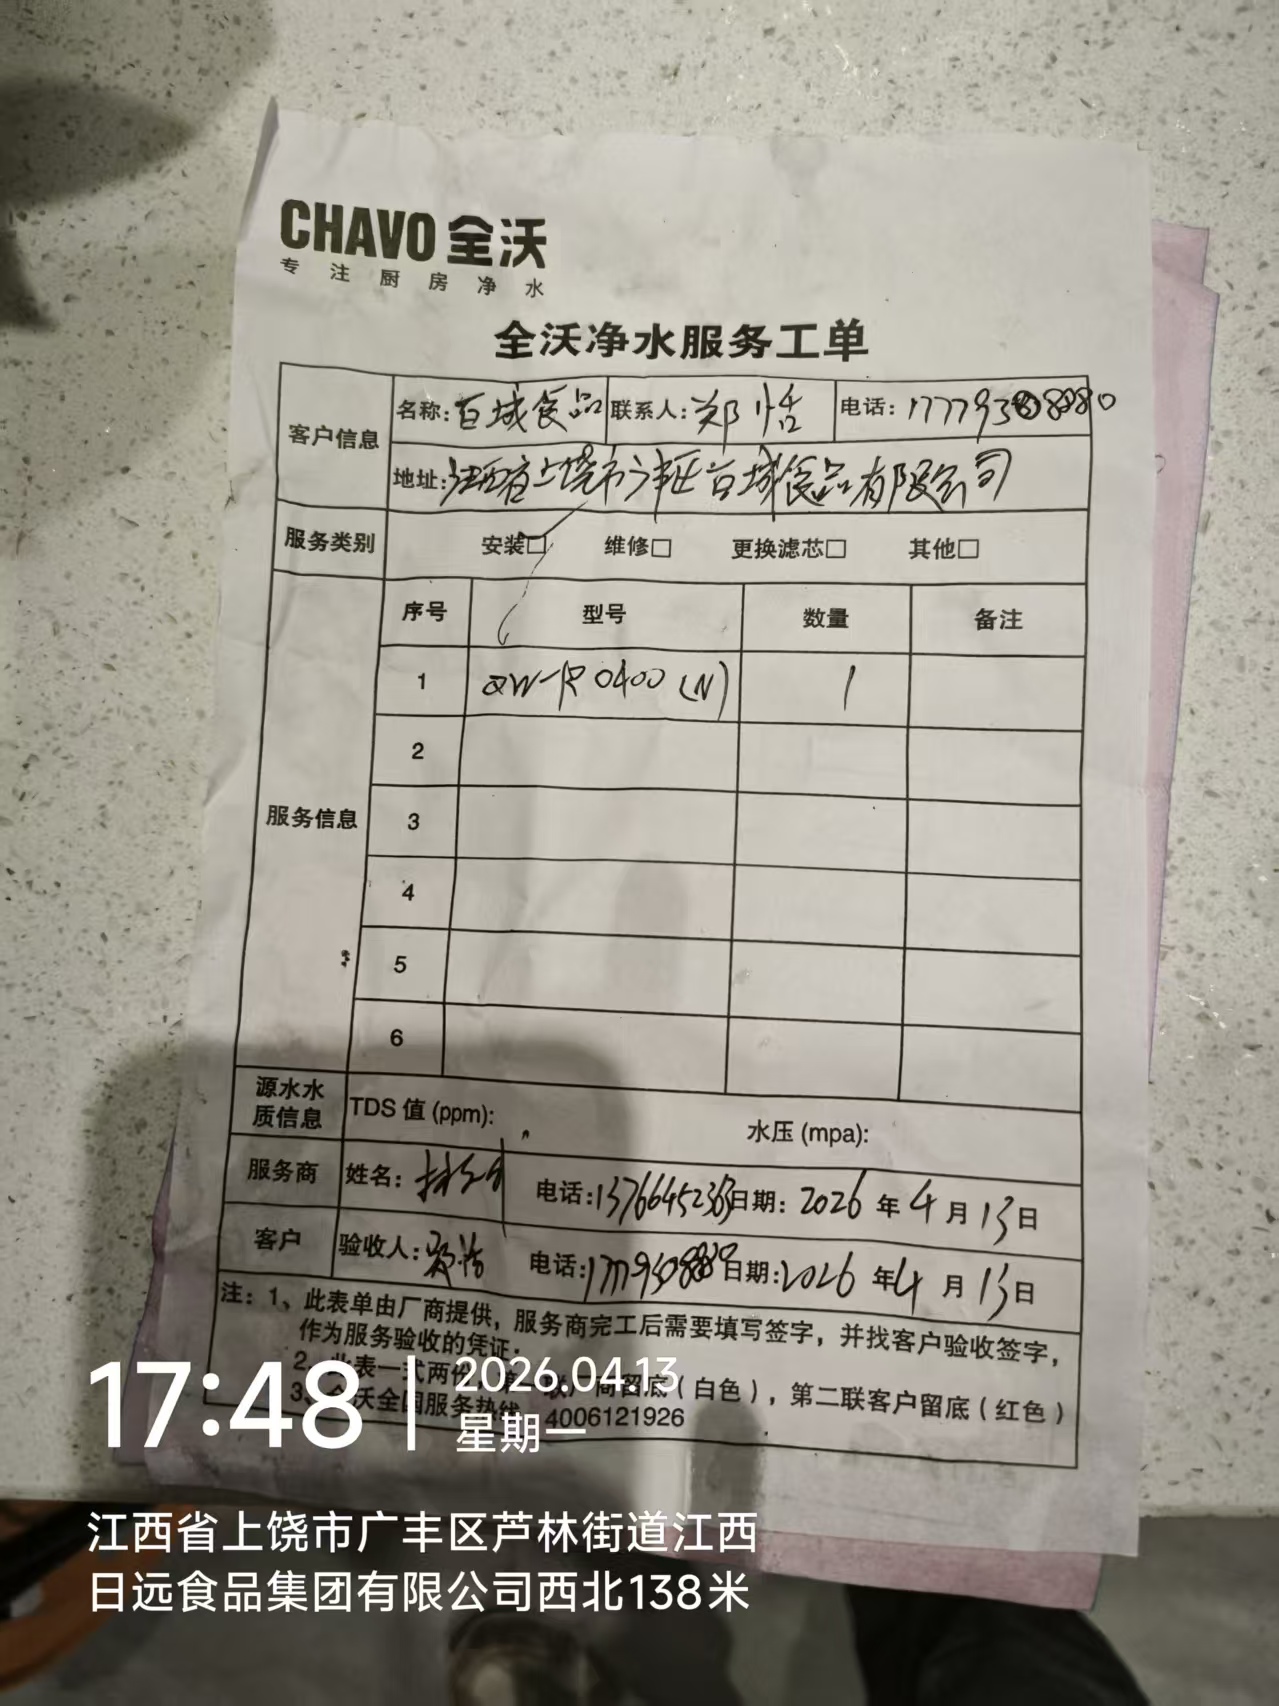 CHAVO 全沃
专注厨房净水
全沃净水服务工单
客户信息 名称: 百域食品 联系人: 郑恬 电话:
地址: 江西省上饶市广丰区百域食品有限公司
服务类别 安装□ 维修□ 更换滤芯□ 其他□
服务信息 序号 型号 数量 备注
1 QW-RO400(N) 1
2
3
4
5
6
源水水质信息 TDS 值 (ppm): 水压 (mpa):
服务商 姓名: 电话: 13766452363 日期: 2026 年 4 月 13 日
客户 验收人: 电话: 日期: 2026 年 4 月 13 日
注: 1、此表单由厂商提供，服务商完工后需要填写签字，并找客户验收签字，
作为服务验收的凭证；
2、此表一式两份，第一联厂商留底（白色），第二联客户留底（红色）
3、全沃全国服务热线 4006121926
17:48
2026.04.13
星期一
江西省上饶市广丰区芦林街道江西
日远食品集团有限公司西北138米